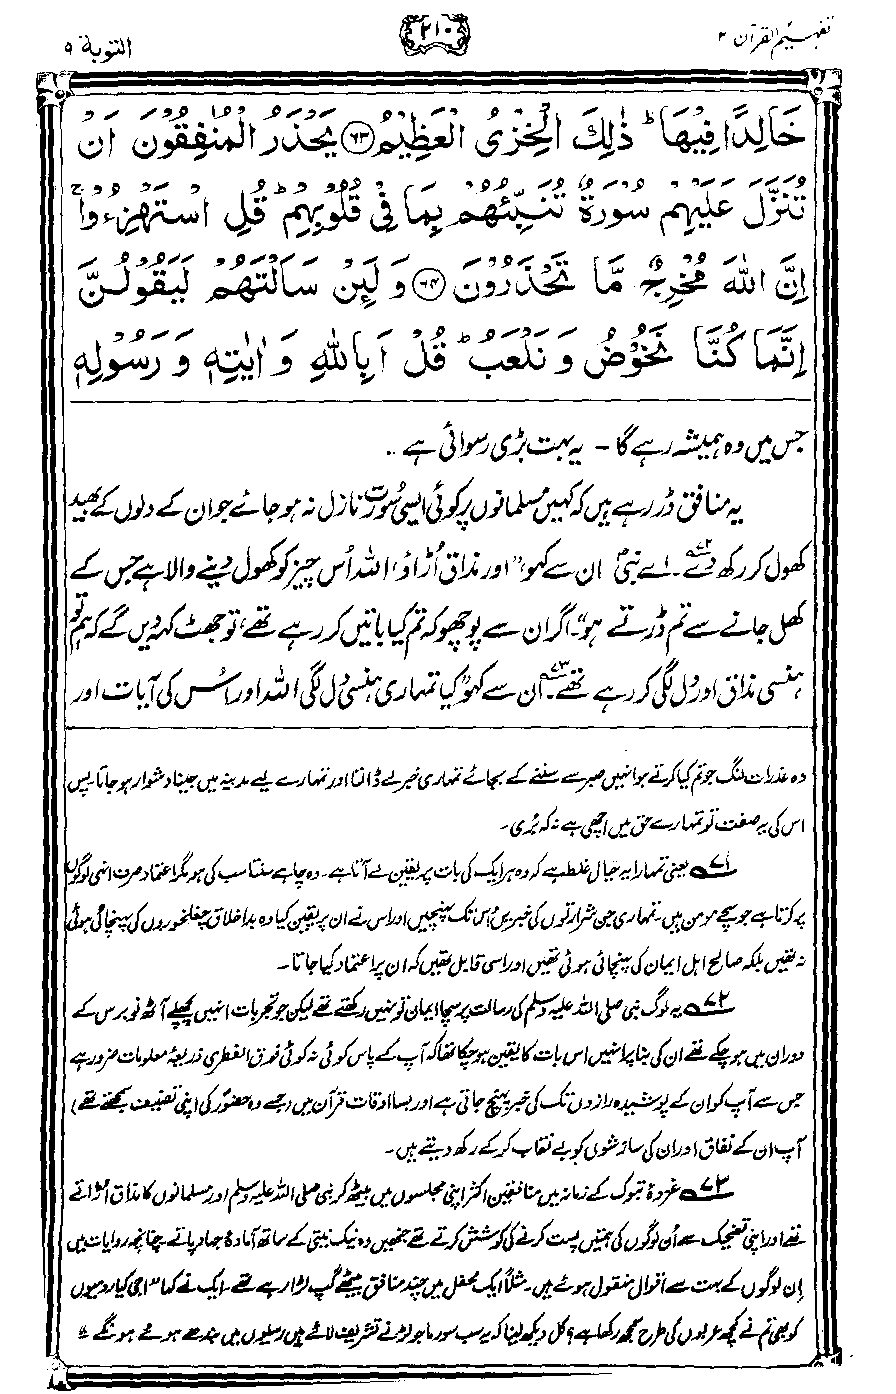 تفہیم القرآن ۲
۲۱۰
التوبة ۹
خَالِدًا فِيْهَا ؕ ذٰلِكَ الْخِزْىُ الْعَظِيْمُ ﴿۶۳﴾ يَحْذَرُ الْمُنٰفِقُوْنَ اَنْ
تُنَزَّلَ عَلَيْهِمْ سُوْرَةٌ تُنَبِّئُهُمْ بِمَا فِىْ قُلُوْبِهِمْ ؕ قُلِ اسْتَهْزِءُوْا ۚ
اِنَّ اللّٰهَ مُخْرِجٌ مَّا تَحْذَرُوْنَ ﴿۶۴﴾ وَ لَئِنْ سَاَلْتَهُمْ لَيَقُوْلُنَّ
اِنَّمَا كُنَّا نَخُوْضُ وَ نَلْعَبُ ؕ قُلْ اَبِاللّٰهِ وَ اٰيٰتِهٖ وَ رَسُوْلِهٖ
جس میں وہ ہمیشہ رہے گا ۔ یہ بہت بڑی رسوائی ہے ۔۔
یہ منافق ڈر رہے ہیں کہ کہیں مسلمانوں پر کوئی ایسی سُورت نازل نہ ہو جائے جو ان کے دلوں کے بھید
کھول کر رکھ دے۷۲۔ اے نبیؐ ان سے کہو، ”اور مذاق اُڑاؤ، اللہ اُس چیز کو کھول دینے والا ہے جس کے
کھل جانے سے تم ڈرتے ہو“۔ اگر ان سے پوچھو کہ تم کیا باتیں کر رہے تھے، تو جھٹ کہہ دیں گے کہ ہم تو
ہنسی مذاق اور دل لگی کر رہے تھے۷۳۔ ان سے کہو ”کیا تمہاری ہنسی دل لگی اللہ اور اُس کی آیات اور
وہ عذرات لنگ جو تم کیا کرتے ہو انہیں صبر سے سننے کے بجائے تمہاری خبر لے ڈالتا اور تمہارے لیے مدینہ میں جینا دشوار ہو جاتا۔ پس
اس کی یہ صفت تو تمہارے حق میں اچھی ہے نہ کہ بُری۔
۷۱ یعنی تمہارا یہ خیال غلط ہے کہ وہ ہر ایک کی بات پر یقین لے آتا ہے۔ وہ چاہے سنتا سب کی ہو مگر اعتماد صرف انہی لوگوں
پر کرتا ہے جو سچے مومن ہیں۔ تمہاری جن شرارتوں کی خبریں اُس تک پہنچیں اور اس نے ان پر یقین کیا وہ بد اخلاق چغلخوروں کی پہنچائی ہوئی
نہ تھیں بلکہ صالح اہل ایمان کی پہنچائی ہوئی تھیں اور اسی قابل تھیں کہ ان پر اعتماد کیا جاتا۔
۷۲ یہ لوگ نبی صلی اللہ علیہ وسلم کی رسالت پر سچا ایمان تو نہیں رکھتے تھے لیکن جو تجربات انہیں پچھلے آٹھ نو برس کے
دوران میں ہو چکے تھے ان کی بنا پر انہیں اس بات کا یقین ہو چکا تھا کہ آپ کے پاس کوئی نہ کوئی فوق الفطری ذریعۂ معلومات ضرور ہے
جس سے آپ کو ان کے پوشیدہ رازوں تک کی خبر پہنچ جاتی ہے اور بسا اوقات قرآن میں (جسے وہ حضورؐ کی اپنی تصنیف سمجھتے تھے)
آپ ان کے نفاق اور ان کی سازشوں کو بے نقاب کر کے رکھ دیتے ہیں۔
۷۳ غزوۂ تبوک کے زمانہ میں منافقین اکثر اپنی مجلسوں میں بیٹھ کر نبی صلی اللہ علیہ وسلم اور مسلمانوں کا مذاق اُڑاتے
تھے اور اپنی تضحیک سے اُن لوگوں کی ہمتیں پست کرنے کی کوشش کرتے تھے جنھیں وہ نیک نیتی کے ساتھ آمادۂ جہاد پاتے۔ چنانچہ روایات میں
اِن لوگوں کے بہت سے اقوال منقول ہوئے ہیں۔ مثلاً ایک محفل میں چند منافق بیٹھے گپ لڑا رہے تھے۔ ایک نے کہا ”اجی کیا رومیوں
کو بھی تم نے کچھ عربوں کی طرح سمجھ رکھا ہے؟ کل دیکھ لینا کہ یہ سب سورما جو لڑنے تشریف لائے ہیں رسیوں میں بندھے ہوئے ہونگے“۔